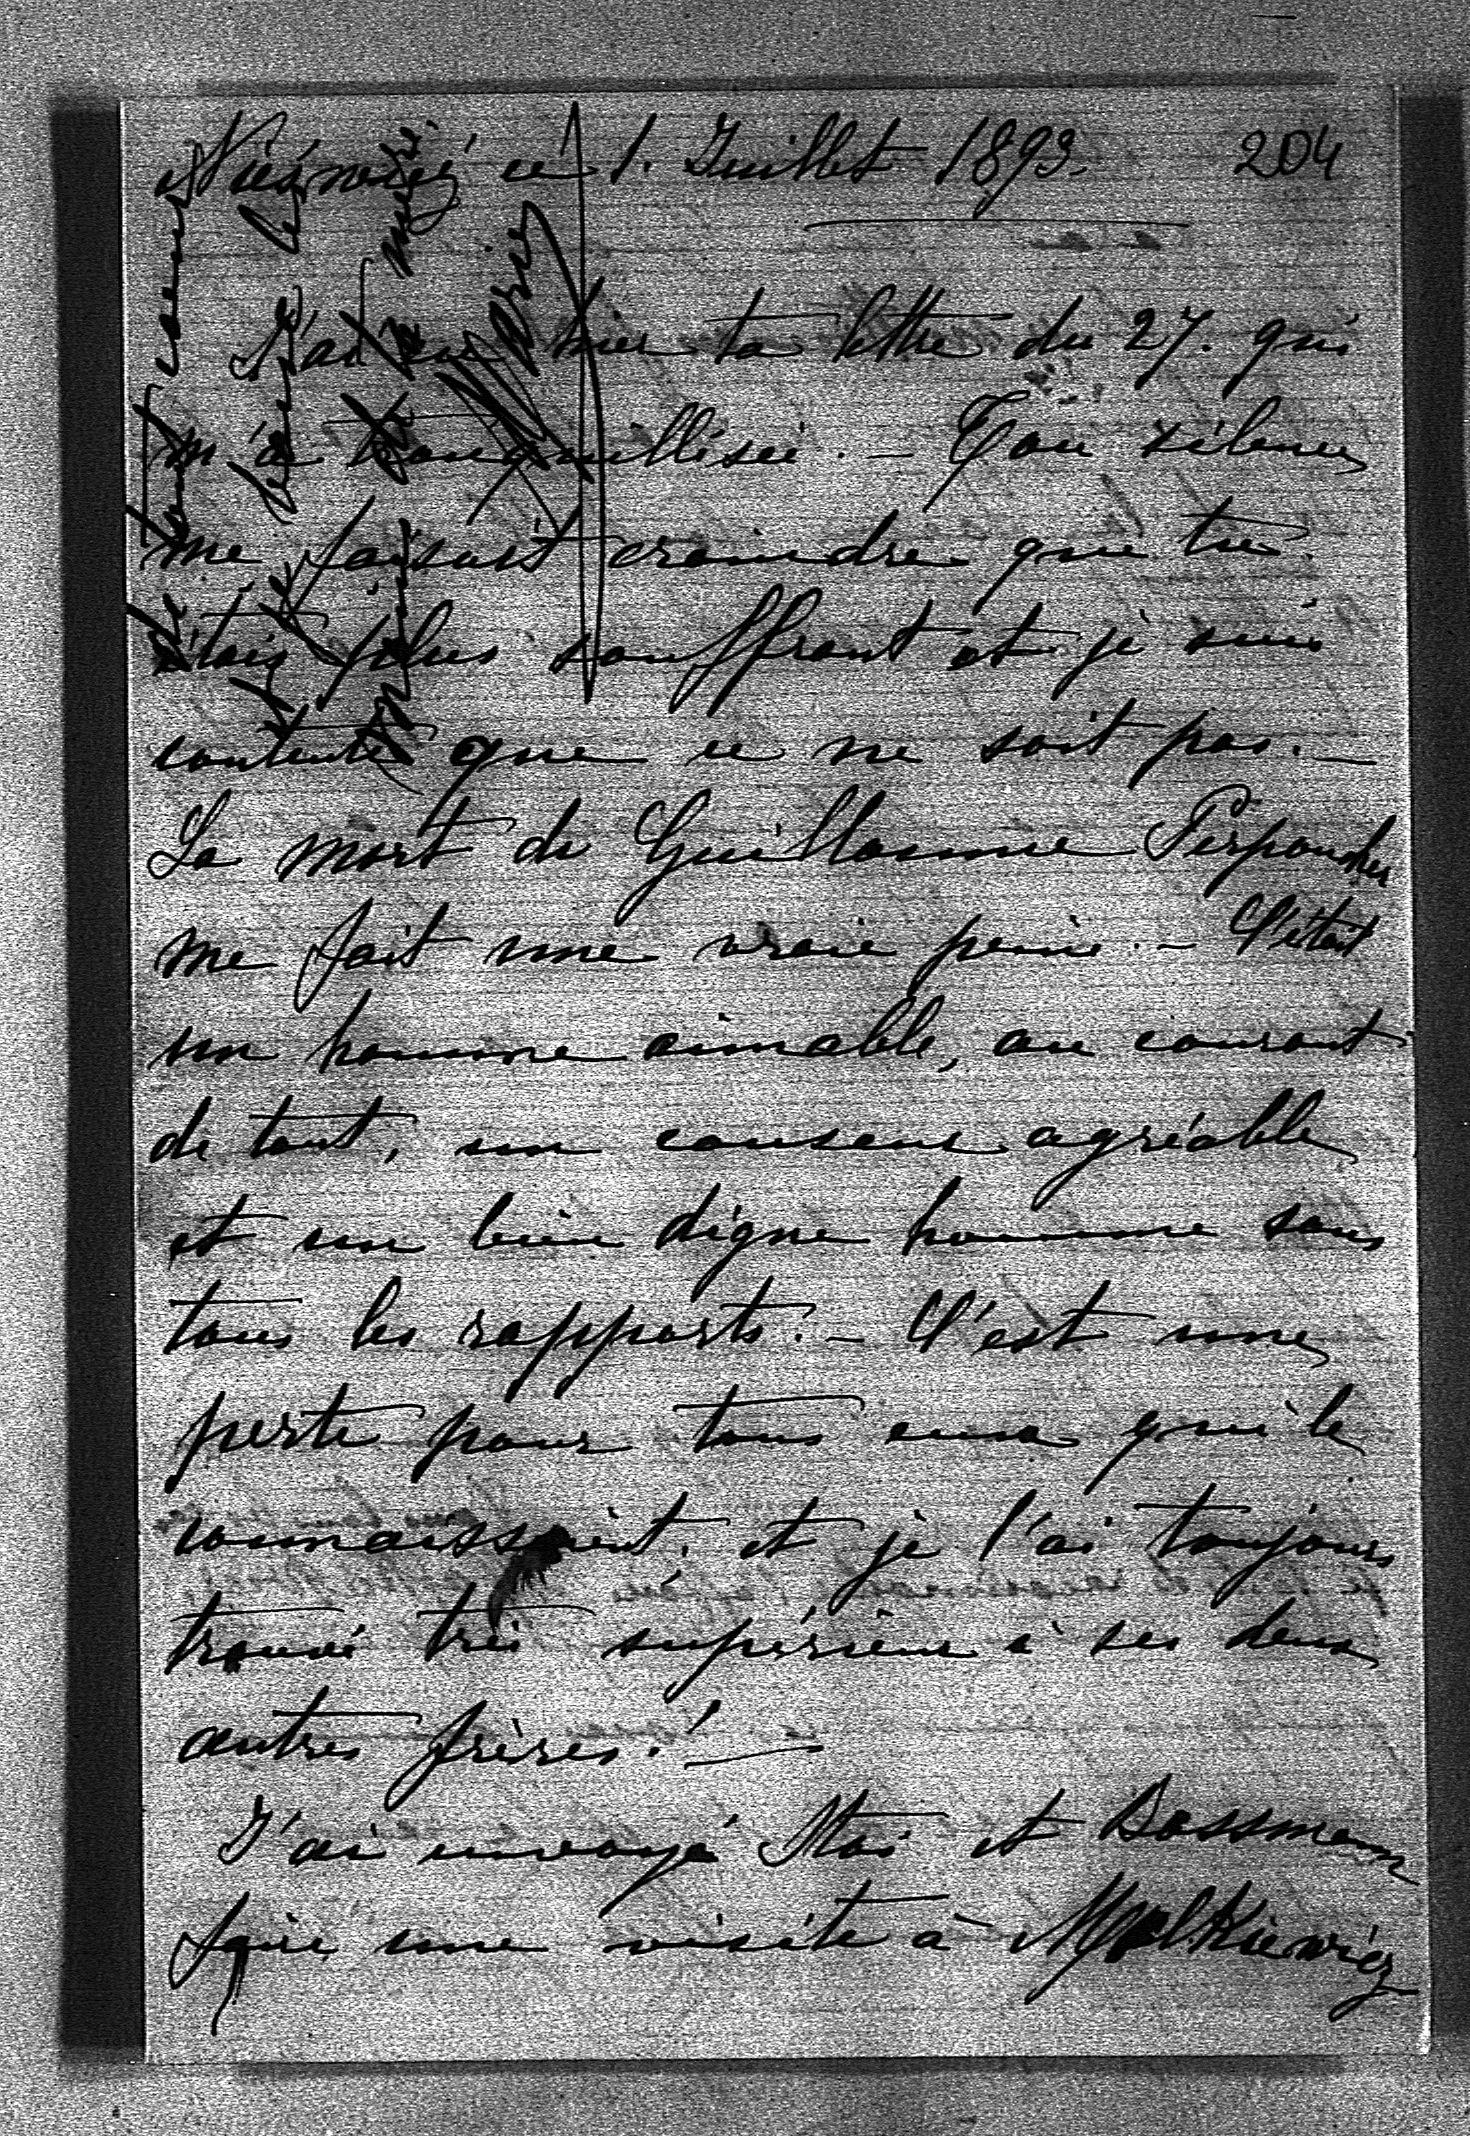 Nieśwież ce 1. Juillet 1893. 204
J'ai eu hier ta lettre du 27. qui
m'a tranquillisée. — Ton silence
me faisait craindre que tu
étais plus souffrant et je suis
contente que ce ne soit pas. —
La mort de Guillaume Perponcher
me fait une vraie peine. — C'était
un homme aimable, au courant
de tout, un causeur agréable
et un bien digne homme sous
tous les rapports. — C'est une
perte pour tous ceux qui le
connaissaient, et je l'ai toujours
trouvé très supérieur à ses deux
autres frères! —
J'ai envoyé Stas et Dassmann
faire une visite à